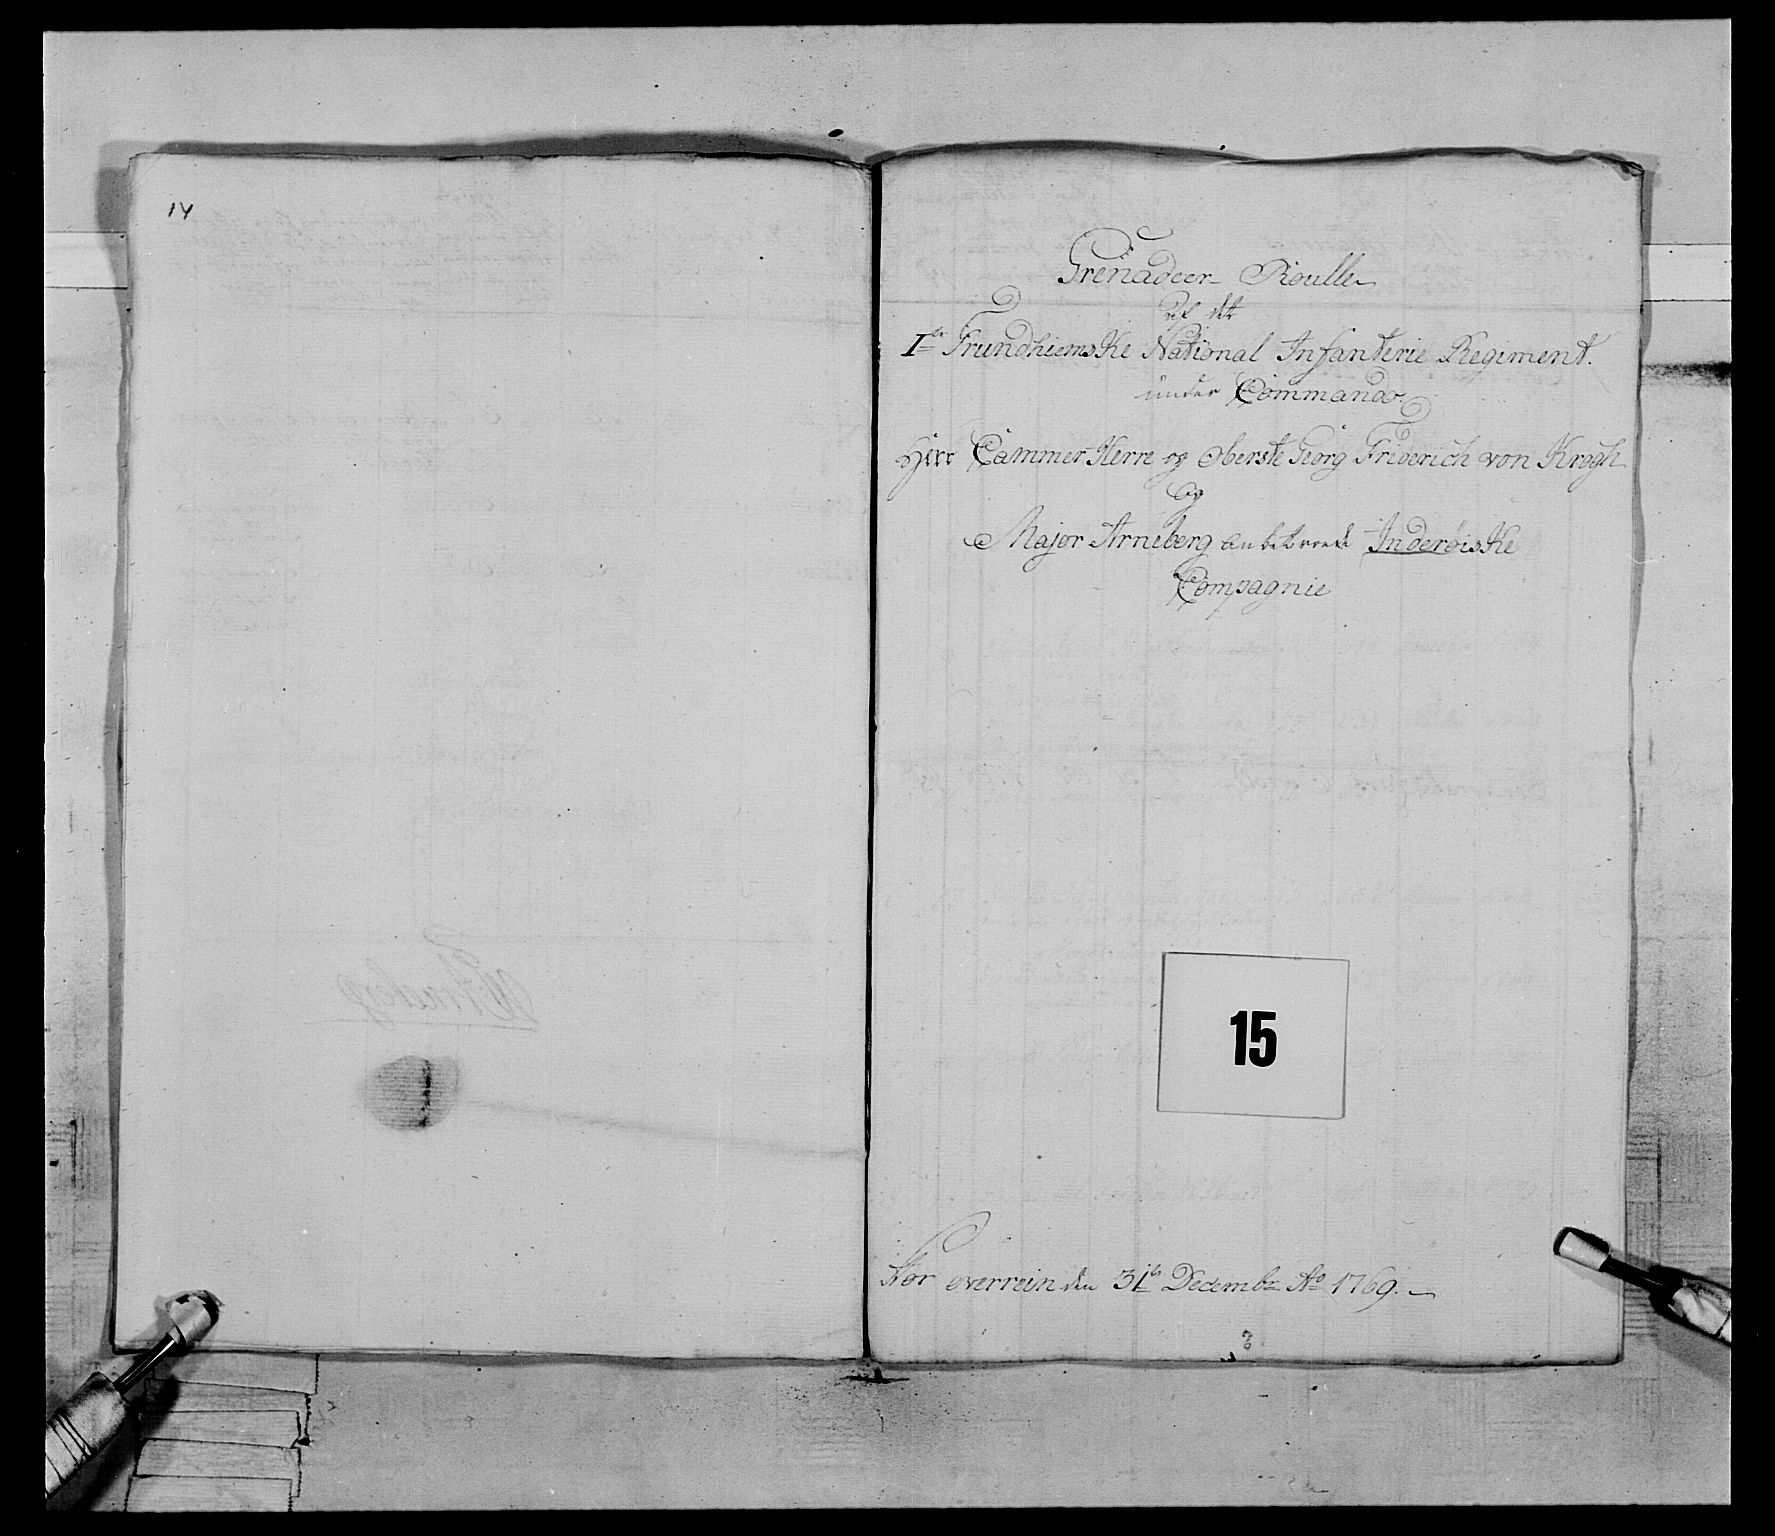 14
Grenadeer Roulle
af det
1te Trundhiemske National Infanterie Regiment.
under Commando
Herr Cammer Herre og Oberste Georg Friderich von Krogh
og
Major Arneberg anbetroede Inderöiske
Compagnie
15
Hor overrein den 31te Decembr Ao 1769.